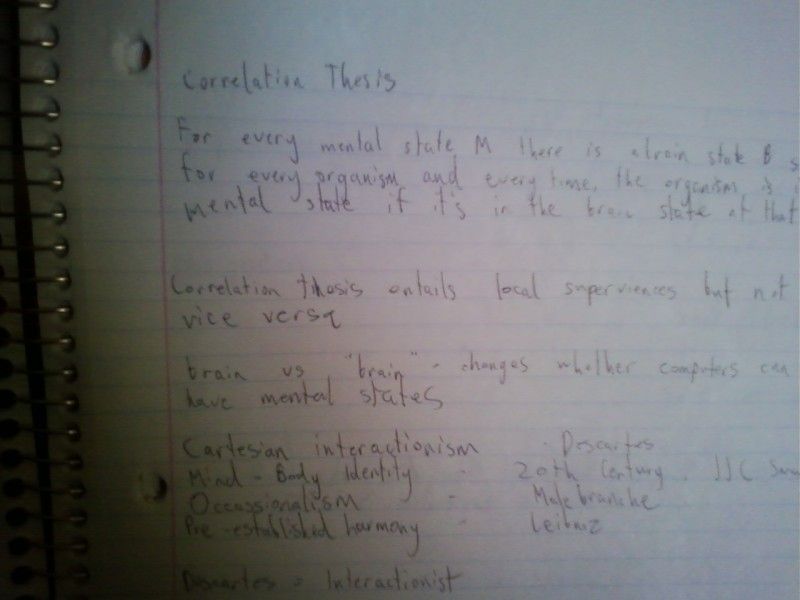 Correlation Thesis
For every mental state M there is a brain state B s
for every organism and every time, the organism is i
mental state if it's in the brain state at that
Correlation thesis entails local superviences but not
vice versa
brain vs "brain" - changes whether computers can
have mental states
Cartesian interactionism - Descartes
Mind - Body Identity - 20th Century, JJC
Occassionalism - Malebranche
Pre-established harmony - Leibniz
Descartes = Interactionist